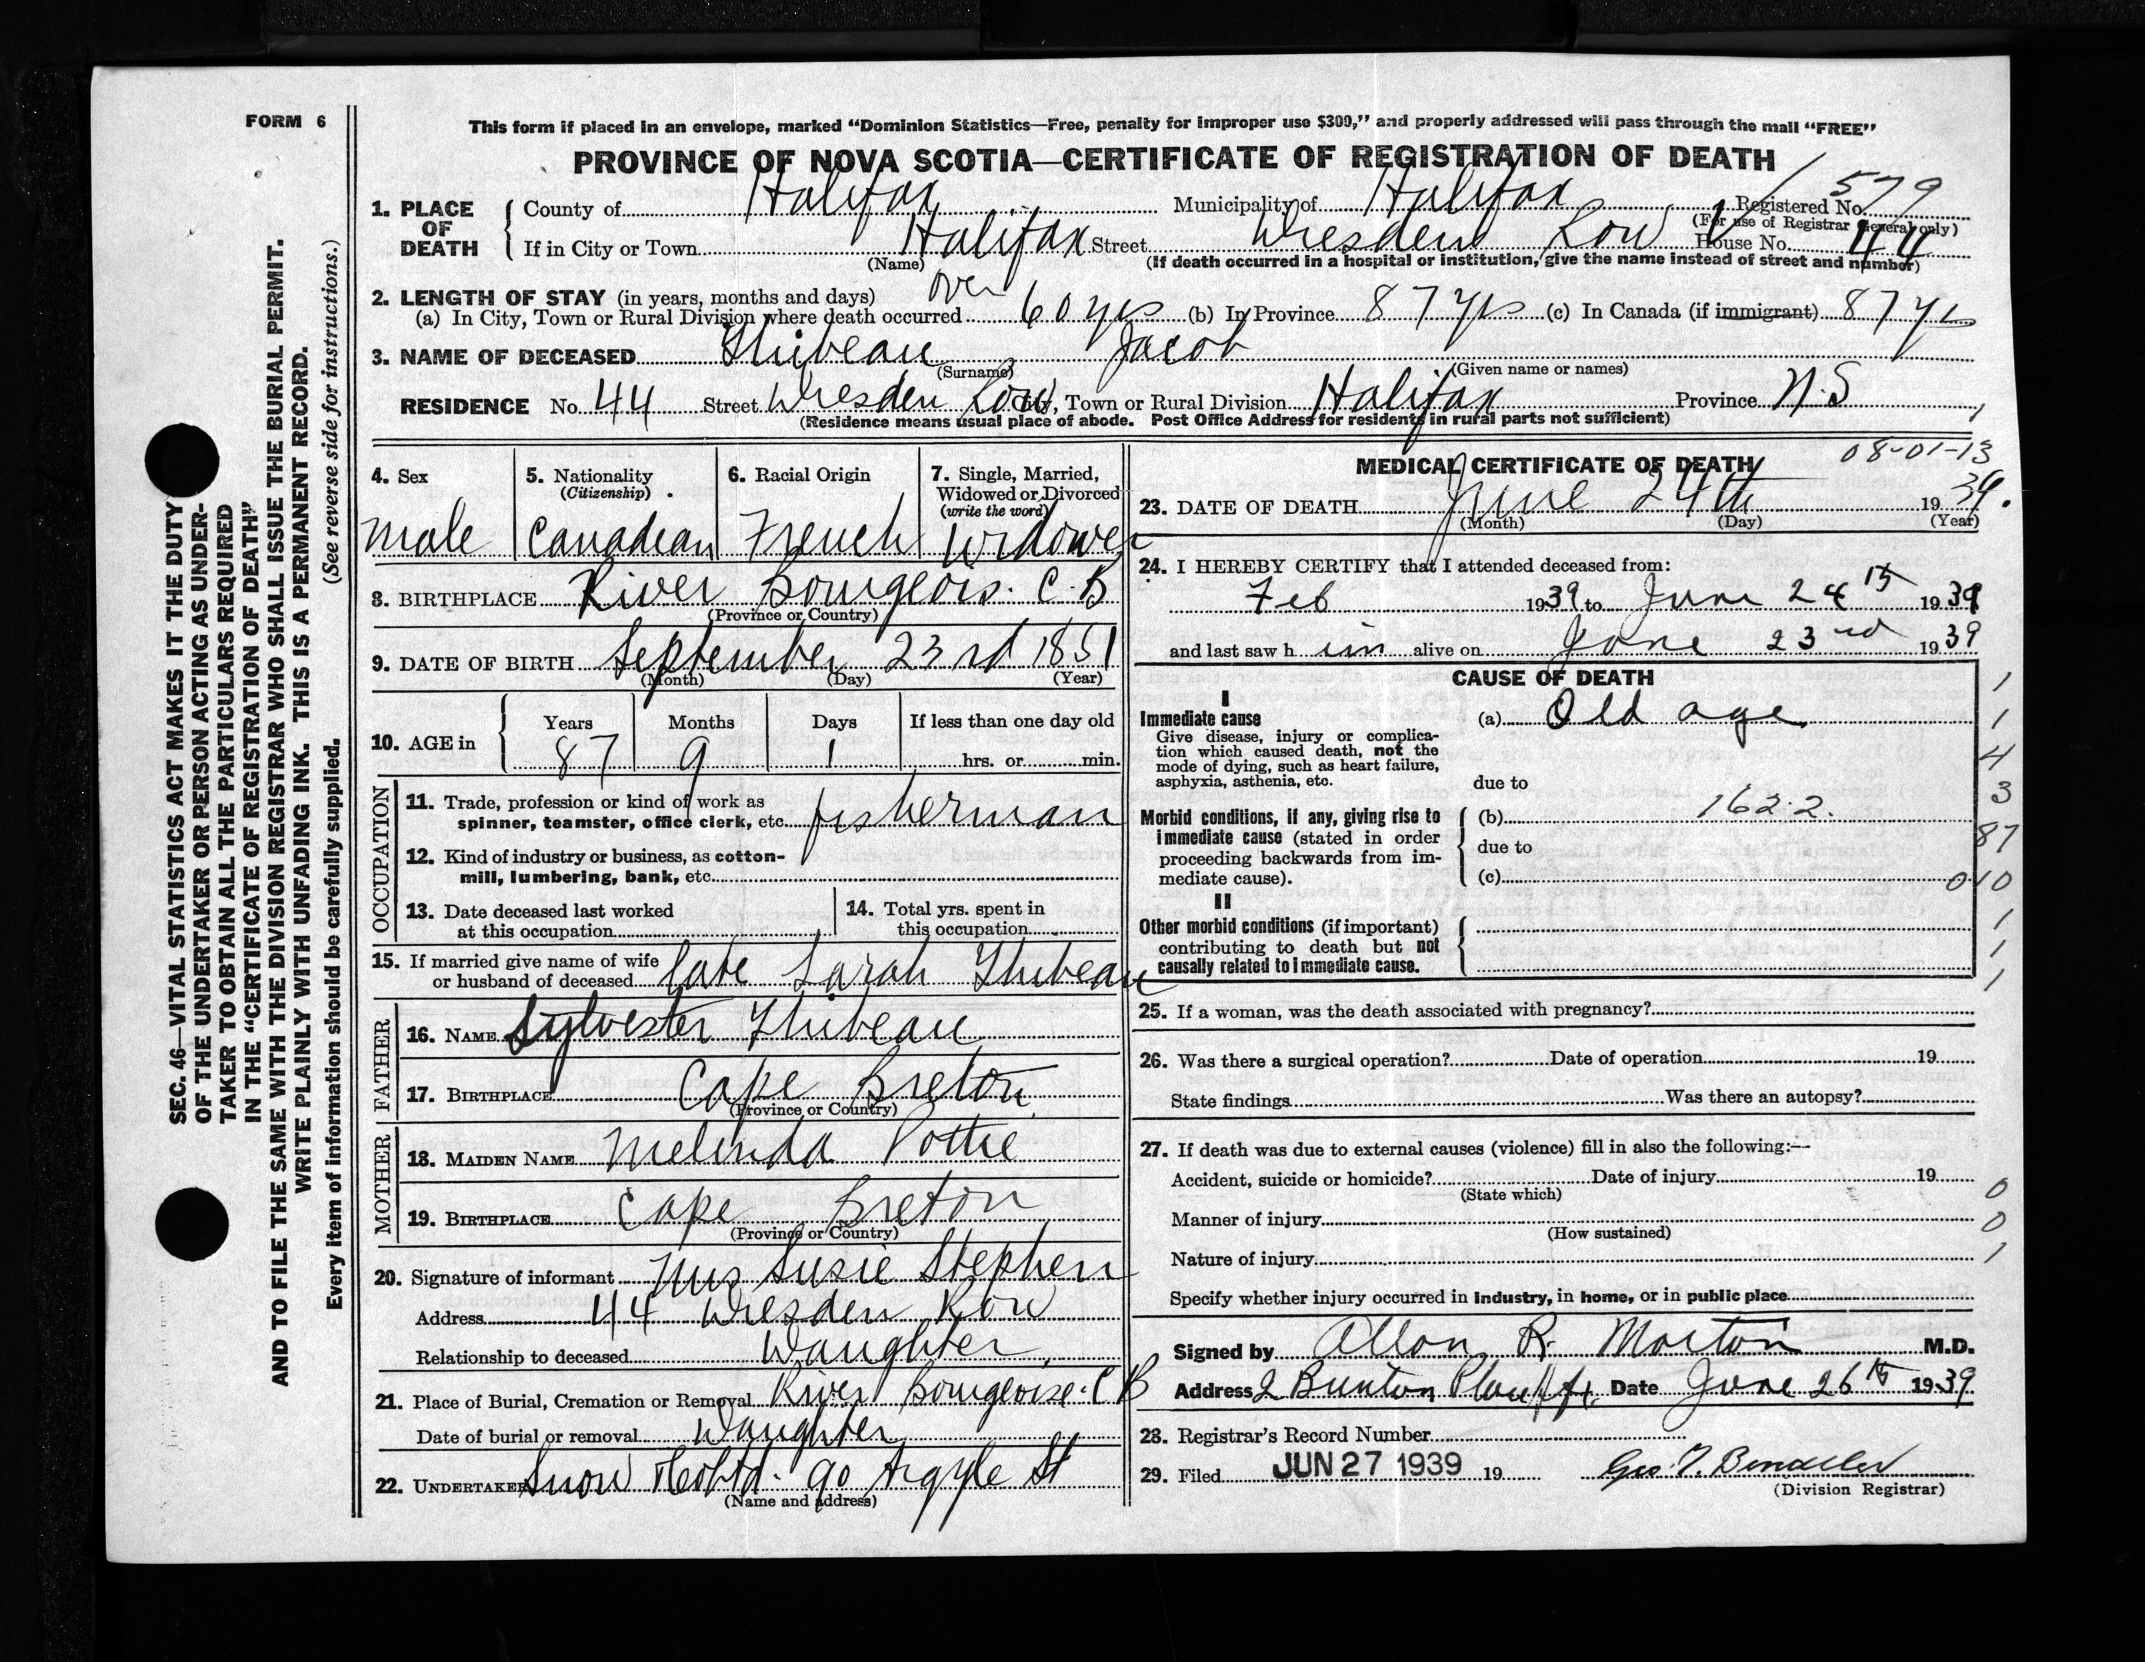 FORM 6
This form if placed in an envelope, marked “Dominion Statistics—Free, penalty for improper use $300,” and properly addressed will pass through the mail “FREE”
PROVINCE OF NOVA SCOTIA—CERTIFICATE OF REGISTRATION OF DEATH
1. PLACE OF DEATH { County of Halifax Municipality of Halifax Registered No. 579
(For use of Registrar General only)
If in City or Town Halifax Street Dresden Row House No. 44
(Name) (If death occurred in a hospital or institution, give the name instead of street and number)
2. LENGTH OF STAY (in years, months and days) over
(a) In City, Town or Rural Division where death occurred 60 yrs (b) In Province 87 yrs (c) In Canada (if immigrant) 87 yrs
3. NAME OF DECEASED Thibeau Jacob
(Surname) (Given name or names)
RESIDENCE No. 44 Street Dresden Row City, Town or Rural Division Halifax Province N.S
(Residence means usual place of abode. Post Office Address for residents in rural parts not sufficient) 1
4. Sex 5. Nationality (Citizenship) 6. Racial Origin 7. Single, Married, Widowed or Divorced (write the word)
Male Canadian French Widower
8. BIRTHPLACE River Bourgeois. C.B
(Province or Country)
9. DATE OF BIRTH September 23rd 1851
(Month) (Day) (Year)
10. AGE in { Years Months Days If less than one day old
87 9 1 hrs. or min.
OCCUPATION
11. Trade, profession or kind of work as
spinner, teamster, office clerk, etc. fisherman
12. Kind of industry or business, as cotton-
mill, lumbering, bank, etc.
13. Date deceased last worked
at this occupation
14. Total yrs. spent in
this occupation
15. If married give name of wife
or husband of deceased late Sarah Thibeau
FATHER
16. NAME Sylvester Thibeau
17. BIRTHPLACE Cape Breton
(Province or Country)
MOTHER
18. MAIDEN NAME Melinda Pottie
19. BIRTHPLACE Cape Breton
(Province or Country)
20. Signature of informant Mrs Susie Stephen
Address 44 Dresden Row
Relationship to deceased Daughter
21. Place of Burial, Cremation or Removal River Bourgeoise. C B
Date of burial or removal Daughter
22. UNDERTAKER Snow & Co Ltd. 90 Argyle St
(Name and address)
MEDICAL CERTIFICATE OF DEATH 08-01-13
23. DATE OF DEATH June 24th 1939.
(Month) (Day) (Year)
24. I HEREBY CERTIFY that I attended deceased from:
Feb 1939 to June 24th 1939
and last saw him alive on June 23rd 1939
CAUSE OF DEATH 1
I
Immediate cause (a) Old age 1
Give disease, injury or complica-
tion which caused death, not the
mode of dying, such as heart failure,
asphyxia, asthenia, etc. 4
due to 3
Morbid conditions, if any, giving rise to (b) 162.2.
immediate cause (stated in order due to 87
proceeding backwards from im-
mediate cause). (c) 010
II
Other morbid conditions (if important) 1
contributing to death but not 1
causally related to immediate cause. 1
25. If a woman, was the death associated with pregnancy?
26. Was there a surgical operation? Date of operation 19
State findings Was there an autopsy?
27. If death was due to external causes (violence) fill in also the following:—
Accident, suicide or homicide? Date of injury 19
(State which) 0
Manner of injury 0
(How sustained)
Nature of injury 1
Specify whether injury occurred in industry, in home, or in public place
Signed by Allan R. Morton M.D.
Address 2 Date June 26th 1939
28. Registrar's Record Number
29. Filed JUN 27 1939 19
(Division Registrar)
SEC. 46—VITAL STATISTICS ACT MAKES IT THE DUTY
OF THE UNDERTAKER OR PERSON ACTING AS UNDER-
TAKER TO OBTAIN ALL THE PARTICULARS REQUIRED
IN THE “CERTIFICATE OF REGISTRATION OF DEATH”
AND TO FILE THE SAME WITH THE DIVISION REGISTRAR WHO SHALL ISSUE THE BURIAL PERMIT.
WRITE PLAINLY WITH UNFADING INK. THIS IS A PERMANENT RECORD.
Every item of information should be carefully supplied. (See reverse side for instructions.)